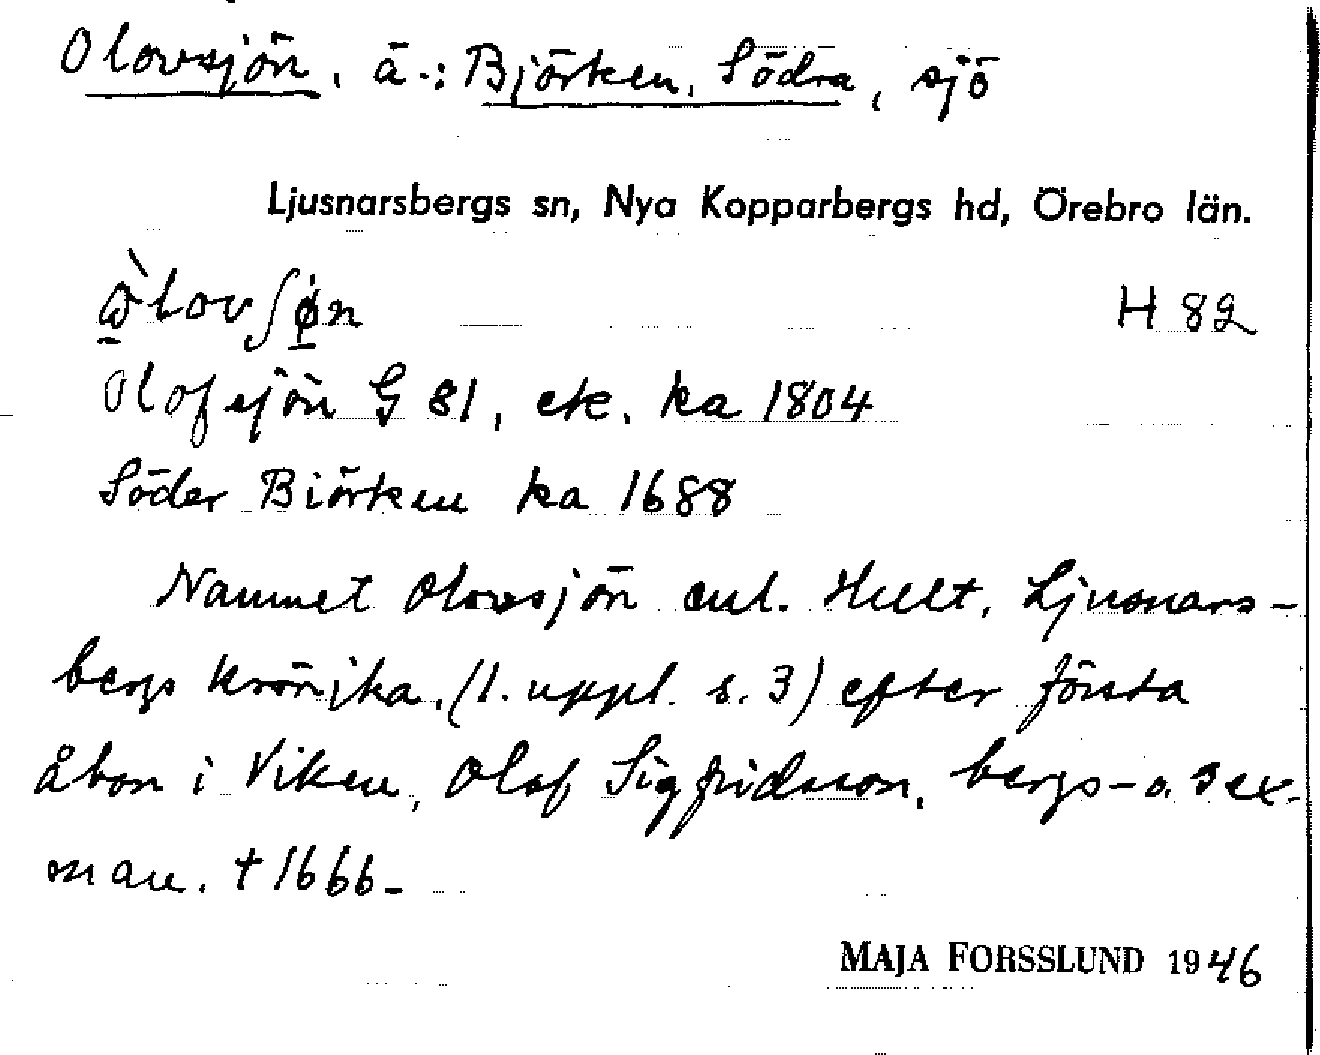 Olovsjön, ä.: Björken, Södra, sjö
Ljusnarsbergs sn, Nya Kopparbergs hd, Örebro län.
H 82
Olofsjön G 81, ek. ka 1804
Söder Biörken ka 1688
Namnet Olovsjön enl. Hult, Ljusnars-
bergs krönika. (1. uppl. s. 3) efter första
åbon i Viken, Olof Sigfridsson, bergs- o. sex-
man. † 1666-
MAJA FORSSLUND 1946